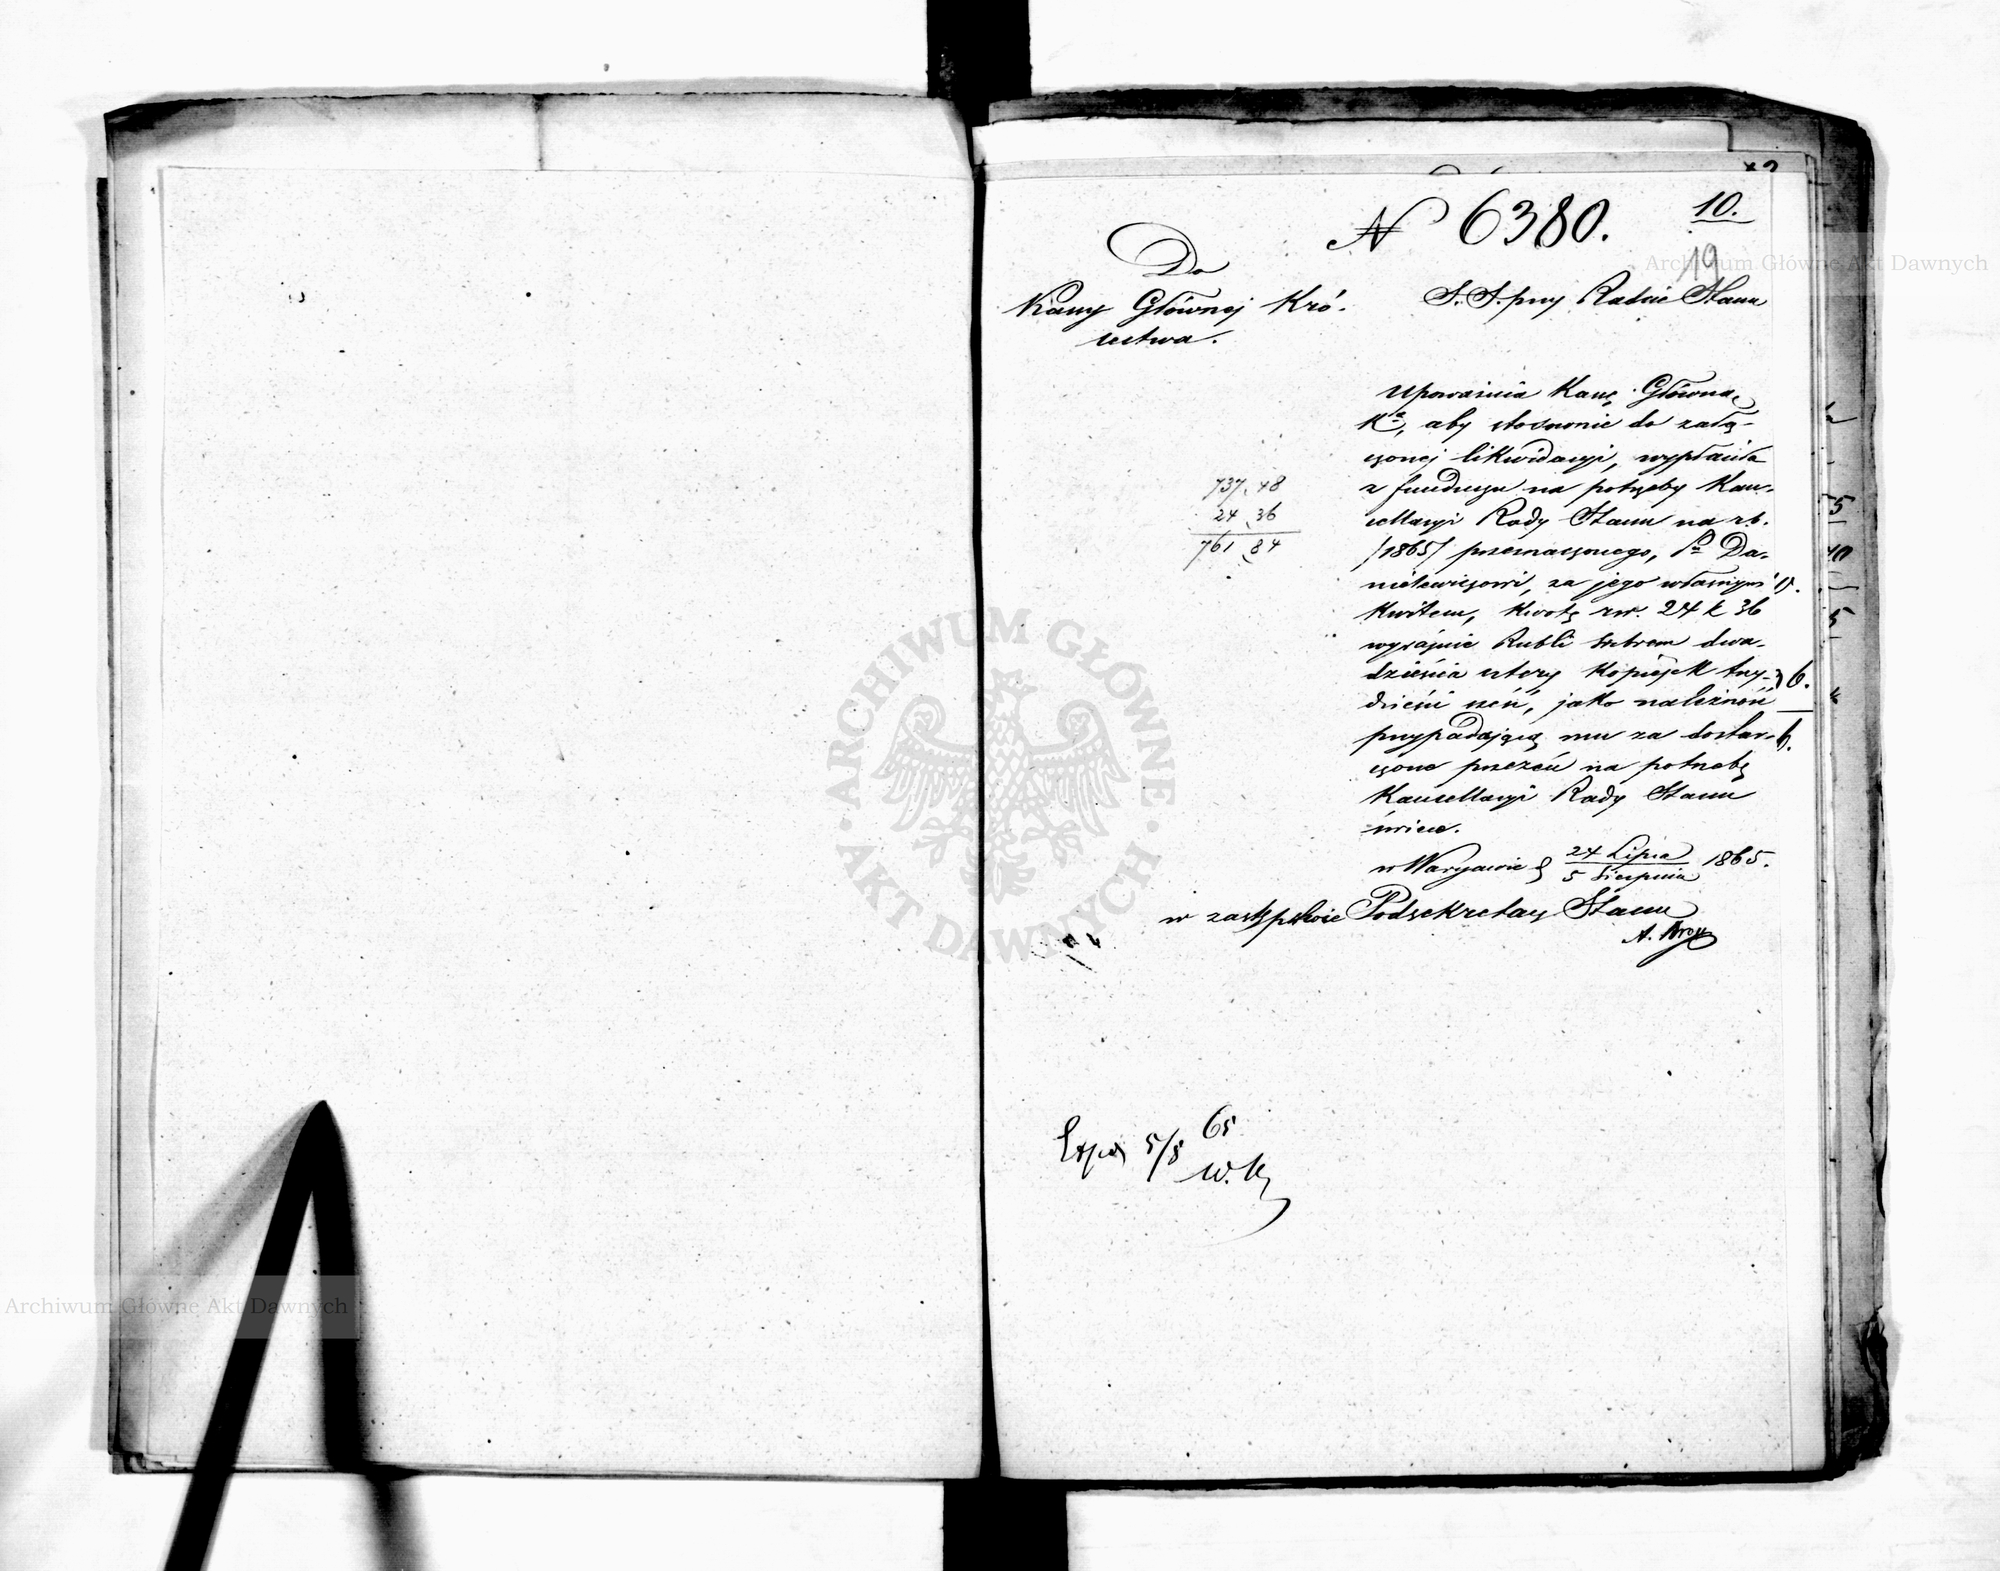 N 6380.
10.
19
Do
Kassy Głównej Kró-
lestwa.
S. S. przy Radzie Stanu
Upoważnia Kassę Główną
Kr., aby stosownie do załą-
czonej likwidacyi, wypłaciła
z funduszu na potrzeby Kan-
cellaryi Rady Stanu na rb.
/1865/ przeznaczonego, Pu Da-
nielewiczowi, za jego własnym
Kwitem, Kwotę rsr. 24 k 36
wyraźnie Rubli srebrem dwa-
dzieścia cztery Kopiejek trzy-
dzieści sześć, jako należność
przypadającą mu za dostar-
czone przezeń na potrzebę
Kancellaryi Rady Stanu
świece.
737, 48
24, 36
761, 84
w Warszawie d 24 Lipca / 5 Sierpnia 1865.
w zastępstwie Podsekretarz Stanu
A.
Exped 5/8 65
W. K
Archiwum Główne Akt Dawnych
Archiwum Główne Akt Dawnych
ARCHIWUM GŁÓWNE
AKT DAWNYCH